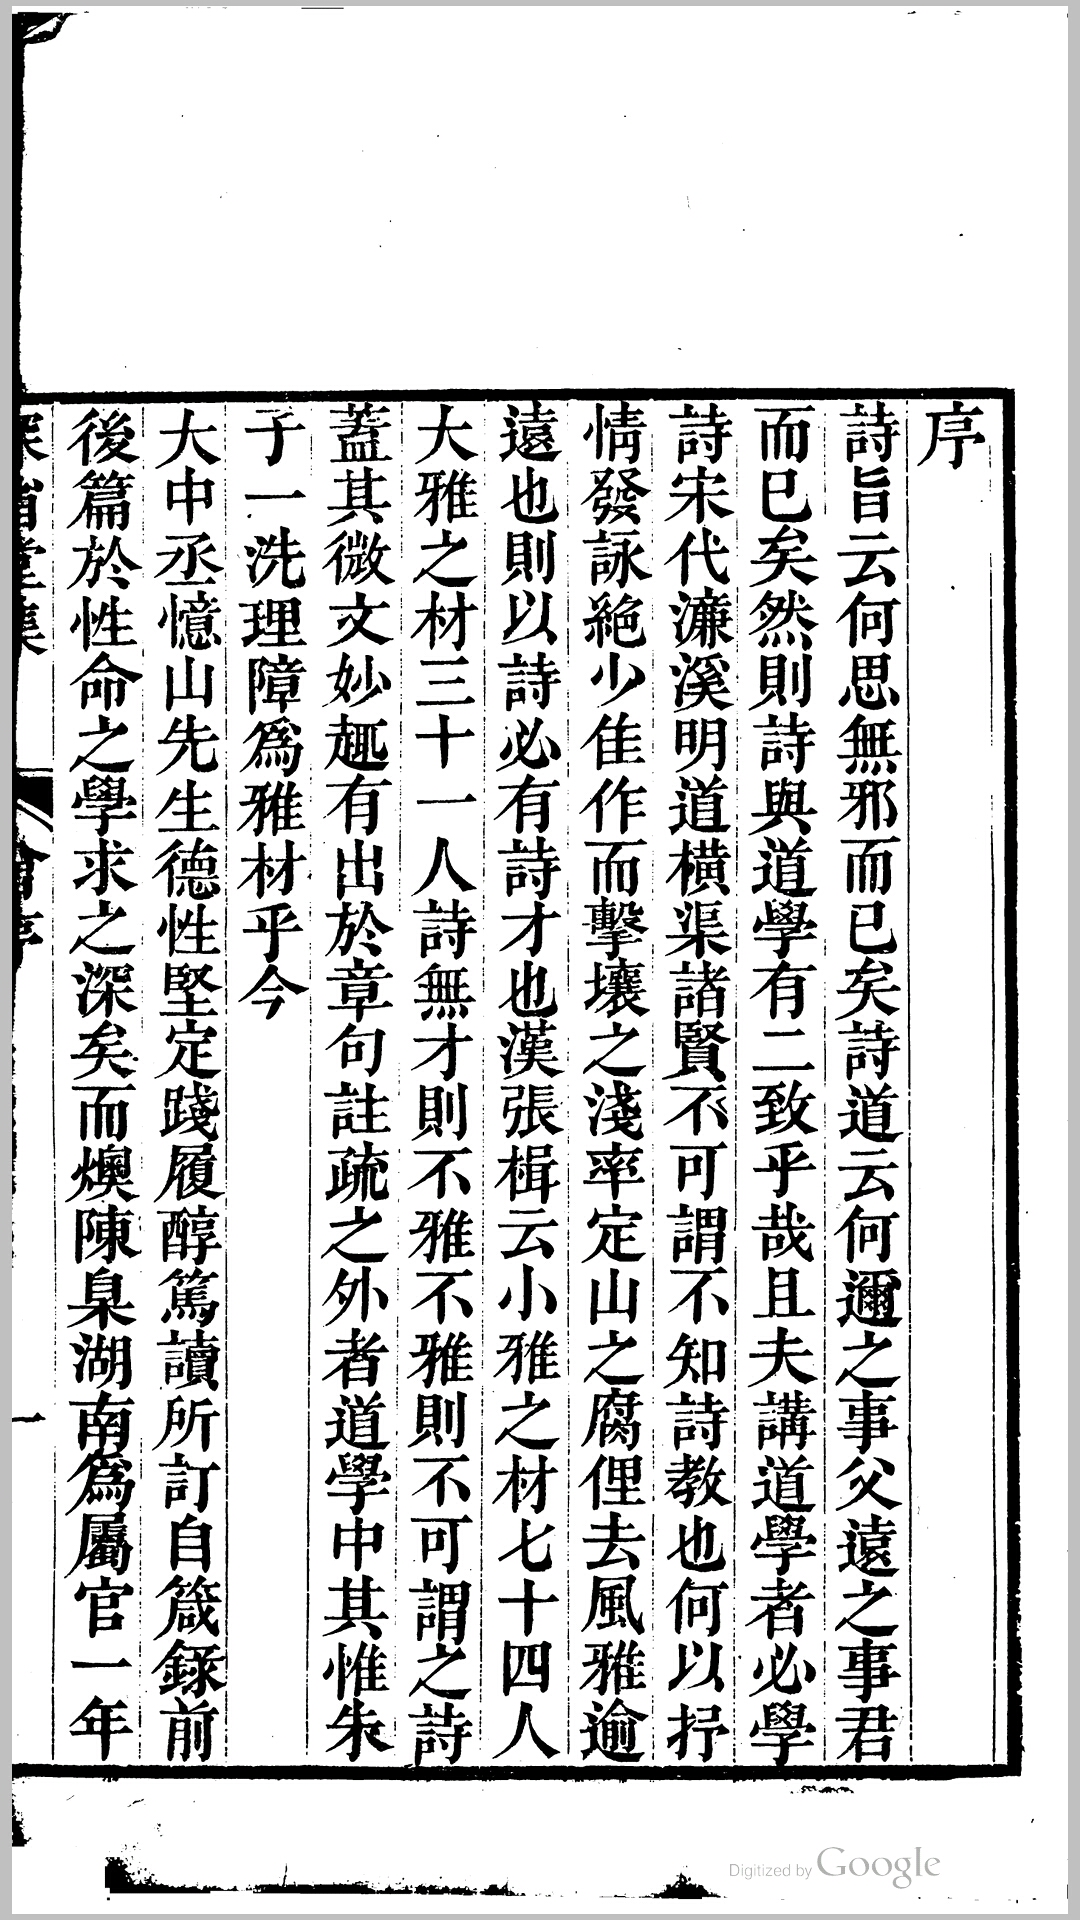 序
詩旨云何思無邪而已矣詩道云何邇之事父遠之事君
而已矣然則詩與道學有二致乎哉且夫講道學者必學
詩宋代濂溪明道橫渠諸賢不可謂不知詩教也何以抒
情發詠絕少佳作而擊壤之淺率定山之腐俚去風雅逾
遠也則以詩必有詩才也漢張楫云小雅之材七十四人
大雅之材三十一人詩無才則不雅不雅則不可謂之詩
蓋其微文妙趣有出於章句註疏之外者道學中其惟朱
子一洗理障爲雅材乎今
大中丞憶山先生德性堅定踐履醇篤讀所訂自箴錄前
後篇於性命之學求之深矣而燠陳臬湖南爲屬官一年
一
Digitized by Google